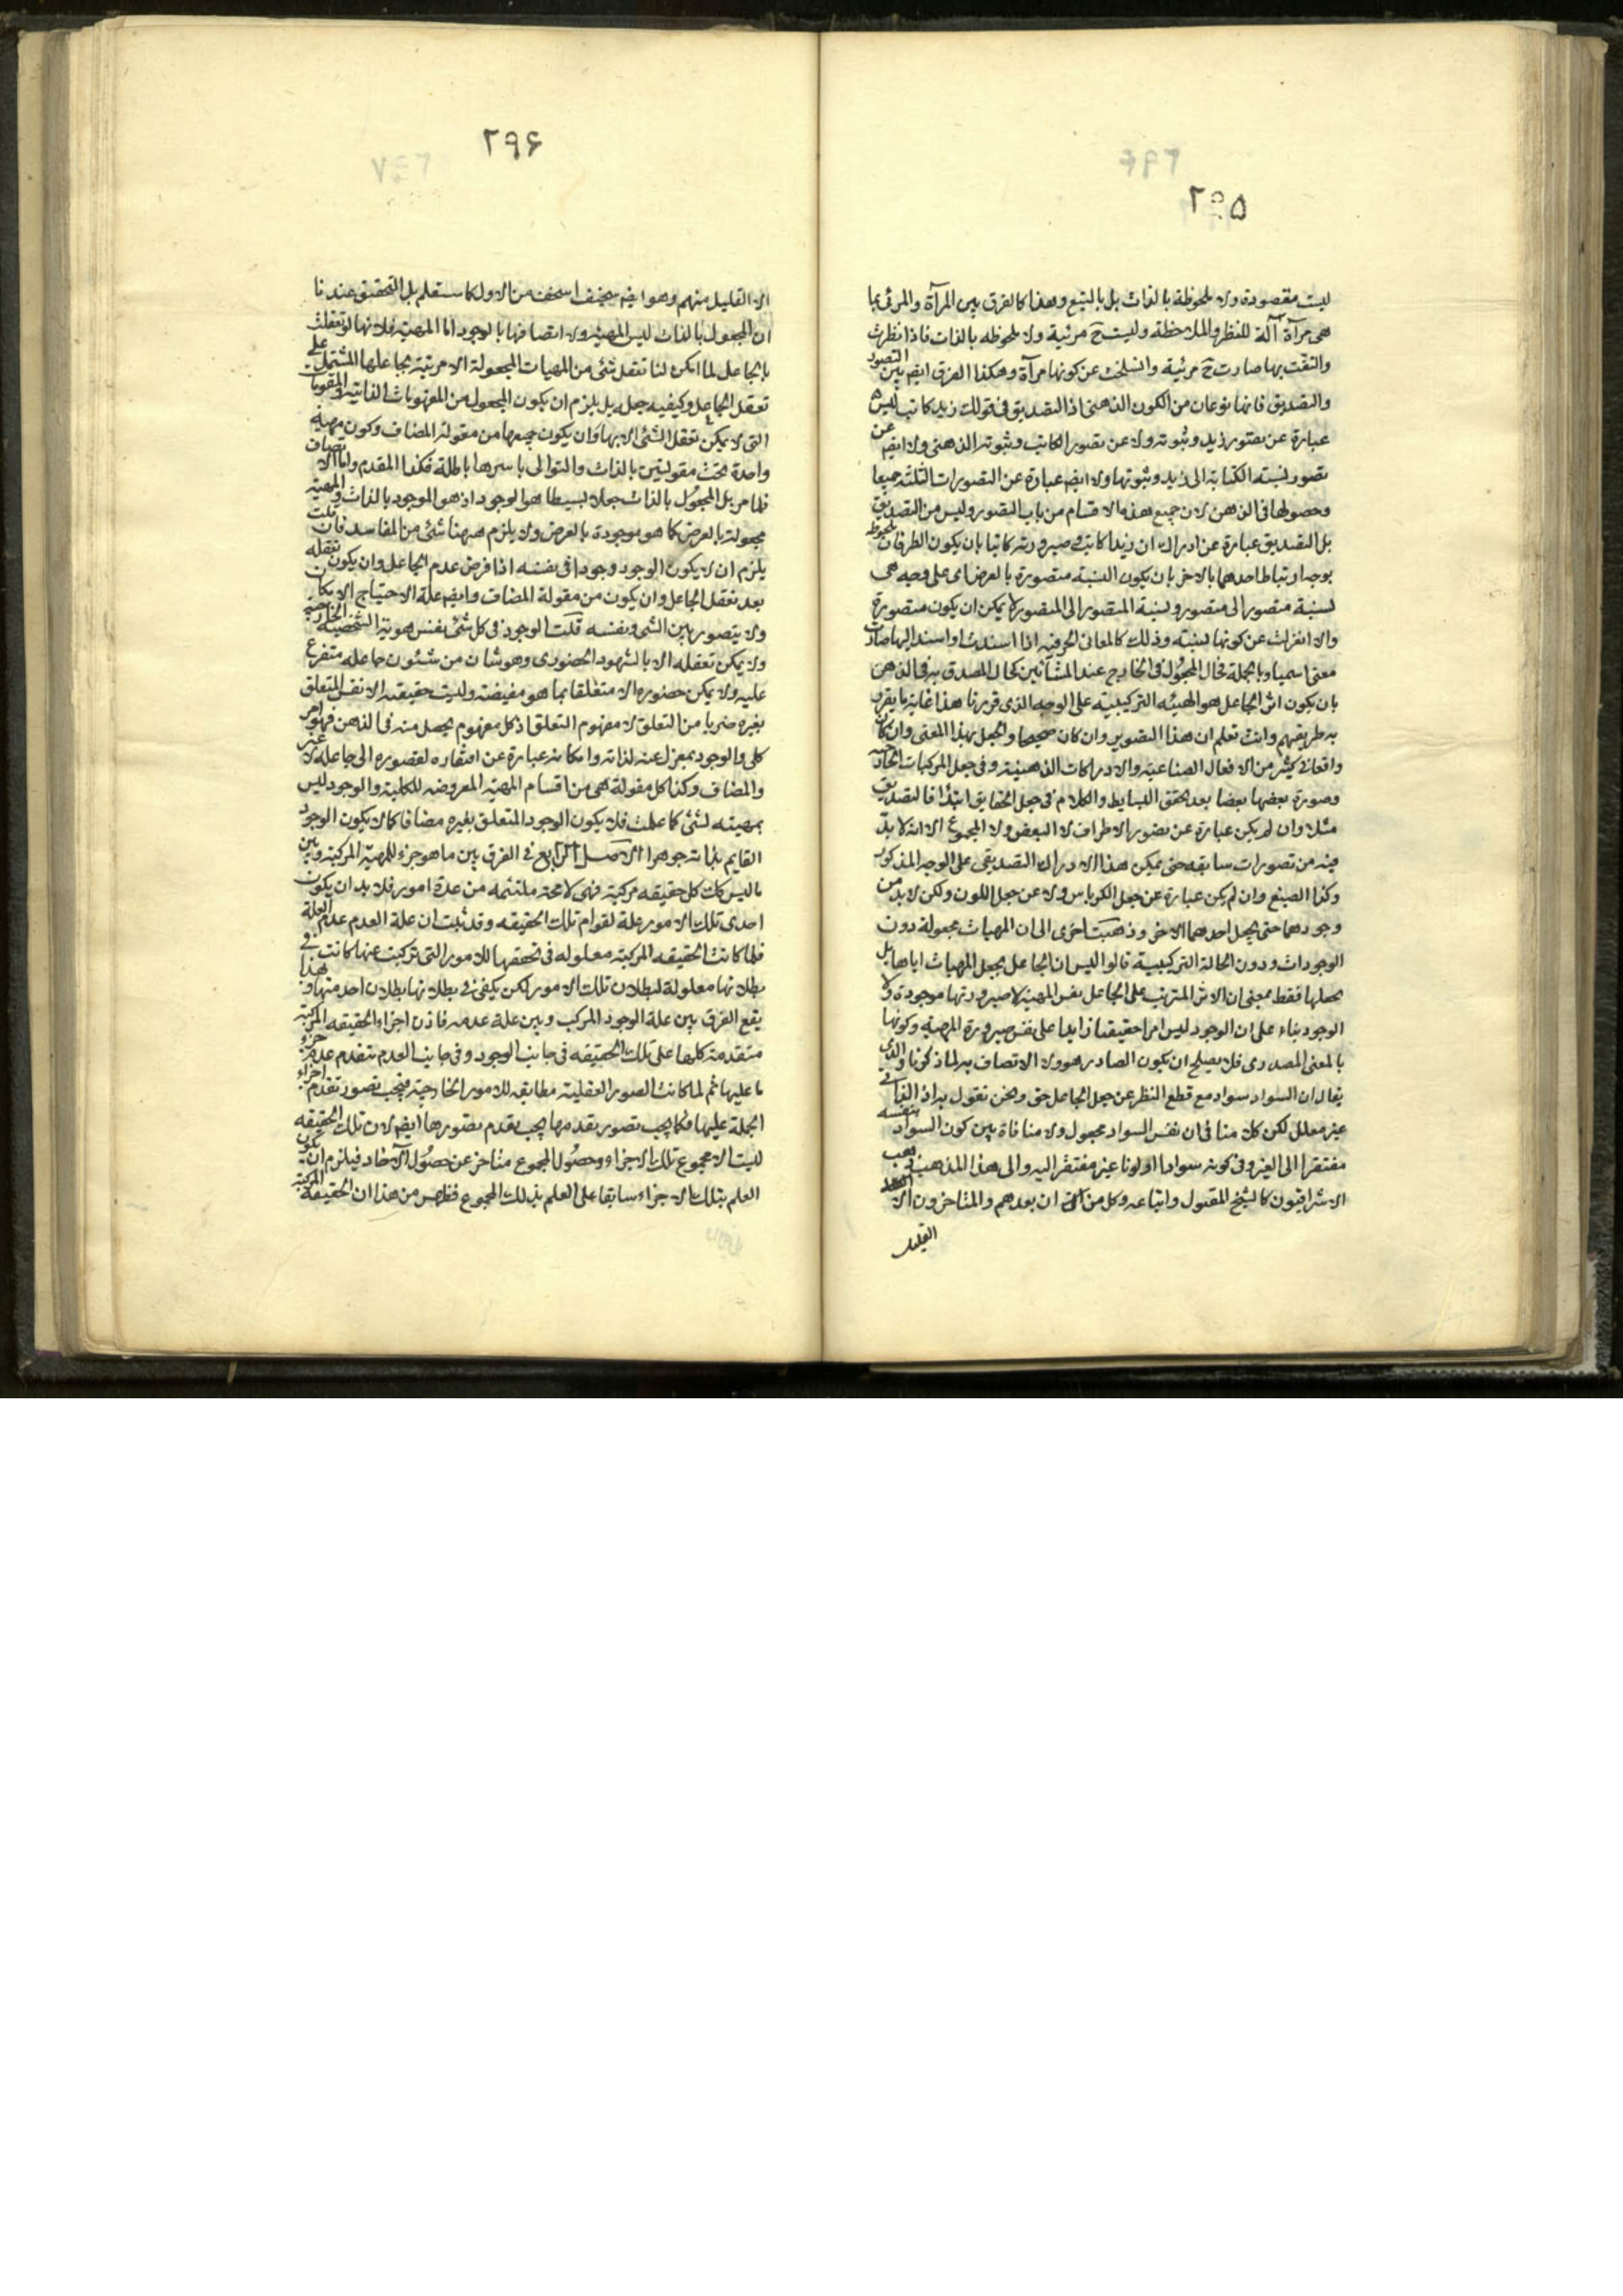 ٢٩٥
ليست مقصودة ولا ملحوظة بالذات بل بالتبع وهذا كالفرق بين المرآة والمرئى بما
هى مرآة آلة للنظر والملاحظة وليست ح مرئية ولا ملحوظه بالذات فاذا نظرت
والتفت بها صارت ح مرئية وانسلخت عن كونها مرآة وهكذا الفرق ايضا بين التصور
والتصديق فانها نوعان من الكون الذهنى اذ التصديق فى قولك زيد كاتب ليس
عبارة عن تصور زيد وثبوته ولا عن تصور الكاتب وثبوته الذهنى ولا ايضا عن
تصور لنسبة الكتابة الى زيد وثبوتها ولا ايضا عبارة عن التصورات الثلثه جميعا
وحصولها فى الذهن لان جميع هذه الاقسام من باب التصور وليس من التصديق
بل التصديق عبارة عن ادراك ان زيدا كاتب وصيرورته كاتبا بان يكون الطرفان ملحوظه
بوجه ارتباط احدهما بالاخر بان يكون النسبة متصورة بالعرض اى على وجه هى
لنسبة متصور الى متصور ونسبة المتصور الى المتصور لا يمكن ان يكون متصورة
والا انعزلت عن كونها لنسبته وذلك كالمعانى الحرفيه اذا اسندت او اسند اليها صارت
معنى اسميا وبالجملة فحال المجعول فى الخارج عند المشائين كحال المصدق به فى الذهن
بان يكون اثر الجاعل هو الهيئه التركيبية على الوجه الذى قررنا هذا غاية ما يقرر
به طريقهم وانت تعلم ان هذا التصوير وان كان صحيحا والجعل بهذا المعنى وان كان
واقعا فى كثير من الافعال الصناعية والادراكات الذهنية وفى جعل المركبات اتحاد
وصورة بعضها بعضا بعد تحقق البسايط والكلام فى جعل الحقايق ابتداء فالتصديق
مثلا وان لم يكن عبارة عن تصور الاطراف لا البعض ولا المجموع الا انه لا بد
فيه من تصورات سابقه حتى يمكن هذا الادراك التصديقى على الوجه المذكور
وكذا الصبغ وان لم يكن عبارة عن جعل الكرباس ولا عن جعل اللون ولكن لا بد من
وجودهما حتى يجعل احدهما الاخر وذهبت اخرى الى ان المهيات مجعولة دون
الوجودات ودون الحالة التركيبية قالوا ليس ان الجاعل يجعل المهيات اياها بل
يجعلها فقط بمعنى ان الاثر المترتب على الجاعل نفس المهية لا صيرورتها موجودة ولا
الوجود بناء على ان الوجود ليس امرا حقيقيا زايدا على نفس صيرورة المهية وكونها
بالمعنى المصدرى فلا يصلح ان يكون الصادر هو ولا الاتصاف به لما ذكرنا والذى
يقال ان السواد سواد مع قطع النظر عن جعل الجاعل حق ونحن نقول به اذ الذاتى
غير معلل لكن كلامنا فى ان نفس السواد مجعول ولا منافاة بين كون السواد بنفسه
مفتقرا الى الغير وفى كونه سوادا او لونا غير مفتقر اليه والى هذا المذهب ذهب
الاشراقيون كالشيخ المقتول واتباعه وكل من اتى ان بعدهم والمتاخرون الا
القليل
٢٩۶
الا القليل منهم وهو ايضا سخيف اسخف من الاول كما ستعلم بل التحقيق عندنا
ان المجعول بالذات ليس المهية ولا اتصافها بالوجود اما المهية فلانها لو تعلقت
بالجاعل لما امكن لنا تعقل شئ من المهيات المجعولة الا مرتبة بجاعلها المشتمل على
تعقل الجاعل وكيفيه جعله بل يلزم ان يكون المجعول من المفهومات الذاتية والمقومات
التى لا يمكن تعقل الشئ الا بها وان يكون جميعها من مقولة المضاف وكون مهية
واحدة تحت مقولتين بالذات والتوالى باسرها باطلة فكذا المقدم واما الاتصاف
فلما مر بل المجعول بالذات جعلا بسيطا هو الوجود اذ هو الموجود بالذات والمهية
مجعولة بالعرض كما هو موجودة بالعرض ولا يلزم ههنا شئ من المفاسد فان قلت
يلزم ان لا يكون الوجود وجودا فى نفسه اذا فرض عدم الجاعل وان يكون تعقله
بعد تعقل الجاعل وان يكون من مقولة المضاف وايضا علة الاحتياج الامكان
ولا يتصور بين الشئ ونفسه قلت الوجود فى كل شئ نفس هويته الشخصية الخارجية
ولا يمكن تعقله الا بالشهود الحضورى وهو شان من شئون جاعله متفرع
عليه ولا يمكن حضوره الا متعلقا بما هو مفيضه وليست حقيقته الا نفس المتعلق
بغيره ضربا من التعلق لا مفهوم التعلق اذ كل مفهوم يحصل منه فى الذهن فهو امر
كلى والوجود بمعزل عنه لذاته وامكانه عبارة عن افتقاره لقصوره الى جاعله لا غير
والمضاف وكذا كل مقولة هى من اقسام المهية المعروضه للكلية والوجود ليس
بمهيته لشئ كما علمت فلا يكون الوجود المتعلق بغيره مضافا كما لا يكون الوجود
القايم بذاته جوهرا الاصل الرابع فى الفرق بين ما هو جزء للمهية المركبة وبين
ما ليس كك كل حقيقه مركبة فهى لا محة ملتئمه من عدة امور فلا بد ان يكون
احدى تلك الامور علة لقوام تلك الحقيقه وقد ثبت ان علة العدم عدم العلة
فلما كانت الحقيقه المركبة معلوله فى تحققها للامور التى تركبت عنها كانت فى
بطلانها معلولة لبطلان تلك الامور لكن يكفى فى بطلانها بطلان احد منها وهذا
يقع الفرق بين علة الوجود المركب وبين علة عدمه فاذن اجزاء الحقيقه المركبة
متقدمة كلها على تلك الحقيقه فى جانب الوجود وفى جانب العدم يتقدم عدم جزء
ما عليها ثم لما كانت الصور العقلية مطابقه للامور الخارجية فيجب تصور تقدم اجزاء
الجملة عليها فكما يجب تصور تقدمها يجب تقدم تصورها ايضا لان تلك الحقيقه
ليست الا مجموع تلك الاجزاء وحصول المجموع متاخر عن حصول الآحاد فيلزم ان يكون
العلم بتلك الاجزاء سابقا على العلم بذلك المجموع فظهر من هذا ان الحقيقة المركبة